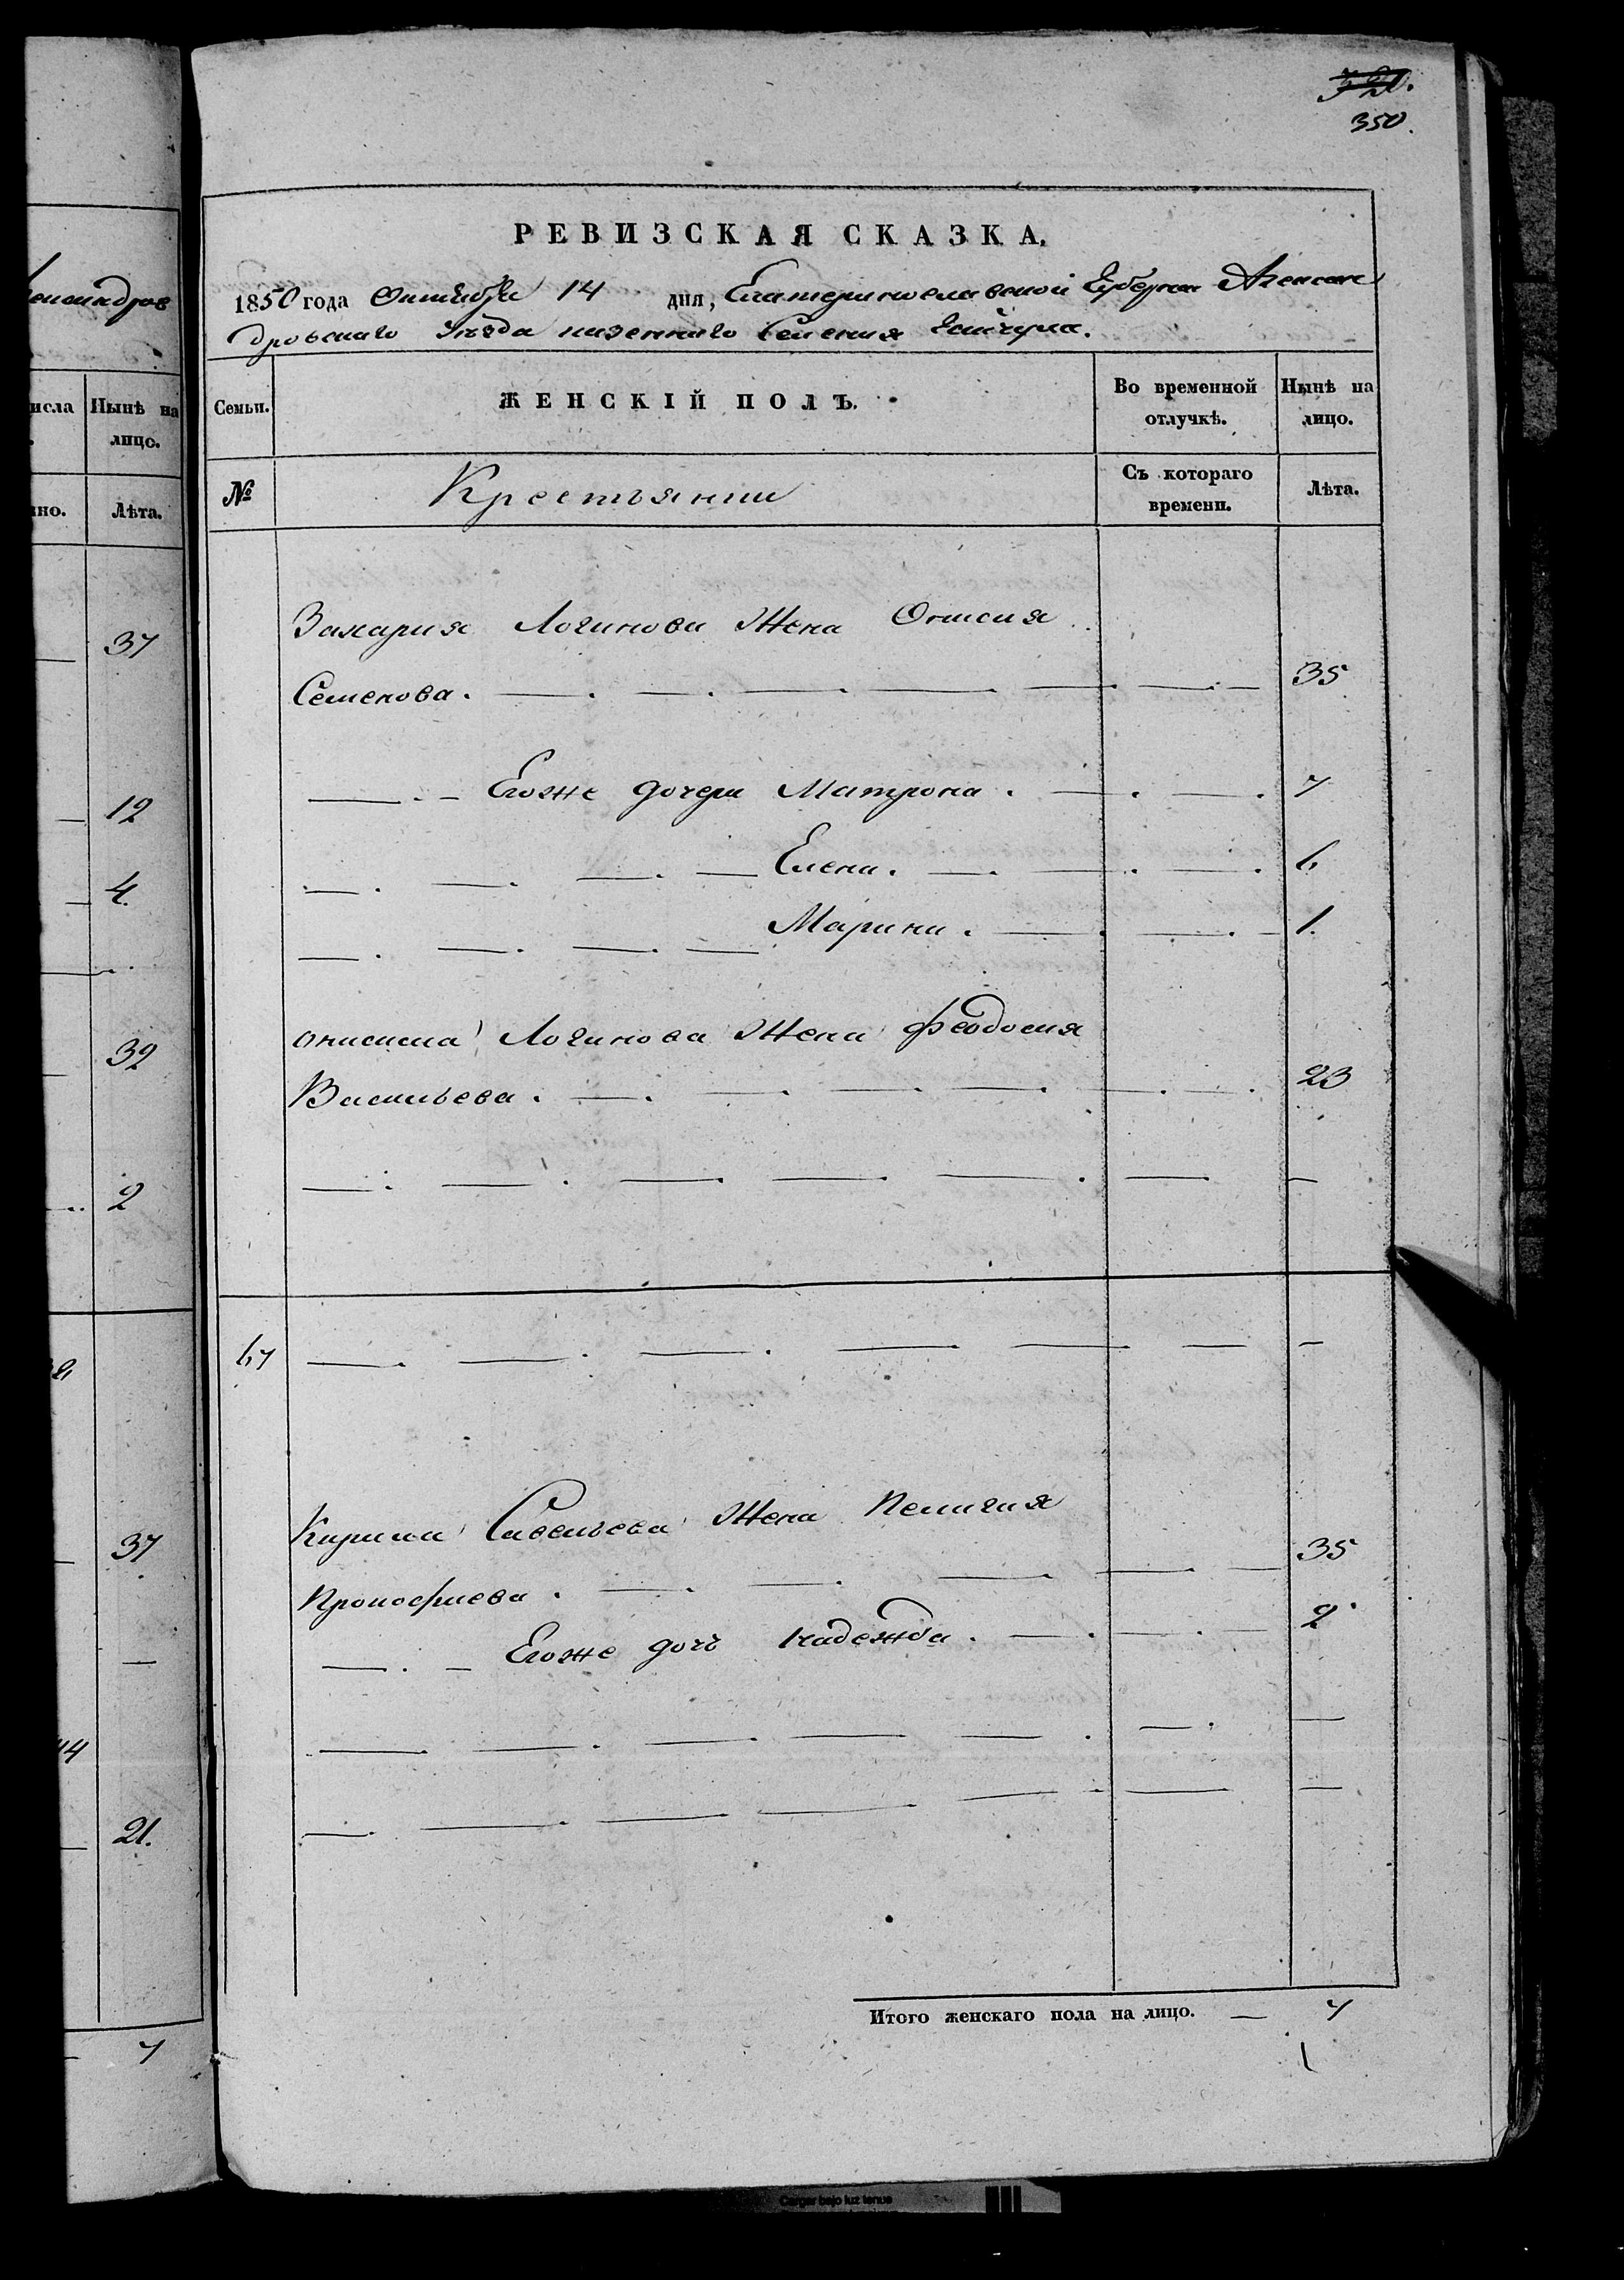 лександров
исла Нынѣ на
лицо.
нно. Лѣта.
37
12
4.
32
2
37
44
21.
7
350.
РЕВИЗСКАЯ СКАЗКА.
1850 года Октября 14 дня, Екатеринославской Губернии Алексан
дровскаго Уѣзда казеннаго Селения Гайчула.
Семьи. ЖЕНСКІЙ ПОЛЪ. Во временной отлучкѣ. Нынѣ на лицо.
№ Крестьянки Съ котораго времени. Лѣта.
Захария Логинова Жена Онисия
Семенова. 35
Егоже дочери Матрона. 7
Елена. 6
Марина. 1.
Онисима Логинова Жена Феодосия
Васильева. 23
67
Кирила Савельева Жена Пелагия
Прокофиева. 35
Егоже дочь Надежда. 2
Итого женскаго пола на лицо. 7
Cargar bajo luz tenue